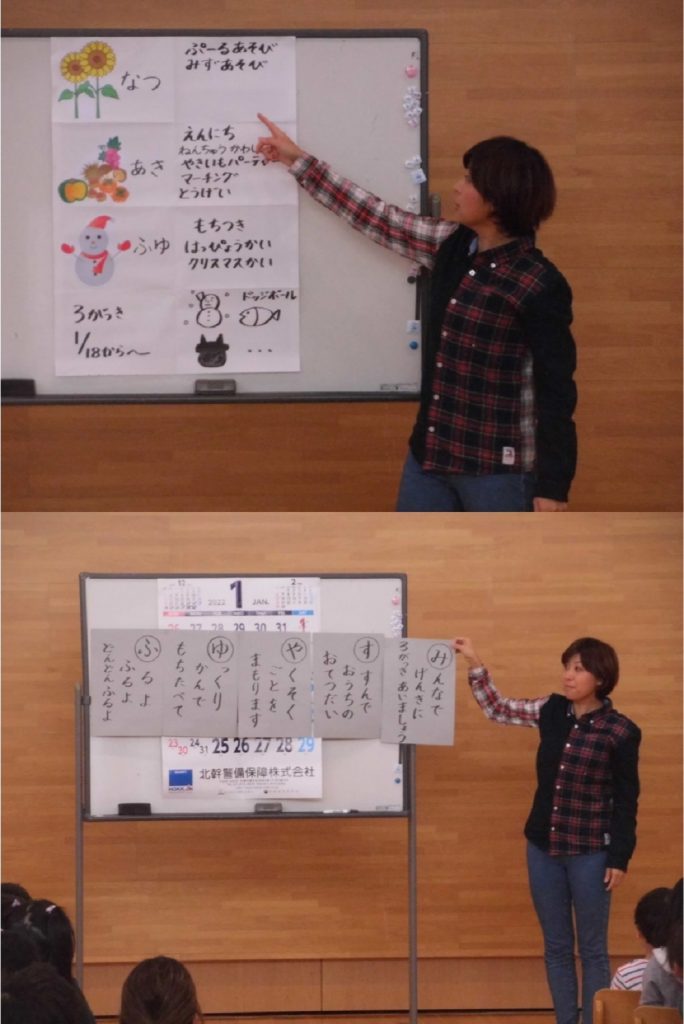 なつ
ぷーるあそび
みずあそび
あき
えんにち
やきいもパーティ
マーチング
とうげい
ふゆ
もちつき
はっぴょうかい
クリスマスかい
3がっき
1/18から〜
ドッジボール
...
12
2022
1
JAN.
2
26 27 28 29 30 31 1
みんなで
げんきに
3がっきあいましょう
すすんで
おうちの
おてつだい
やくそく
ごとを
まもります
ゆっくり
かんで
もちたべて
ふるよ
ふるよ
どんどんふるよ
23/30 24/31 25 26 27 28 29
北幹警備保障株式会社